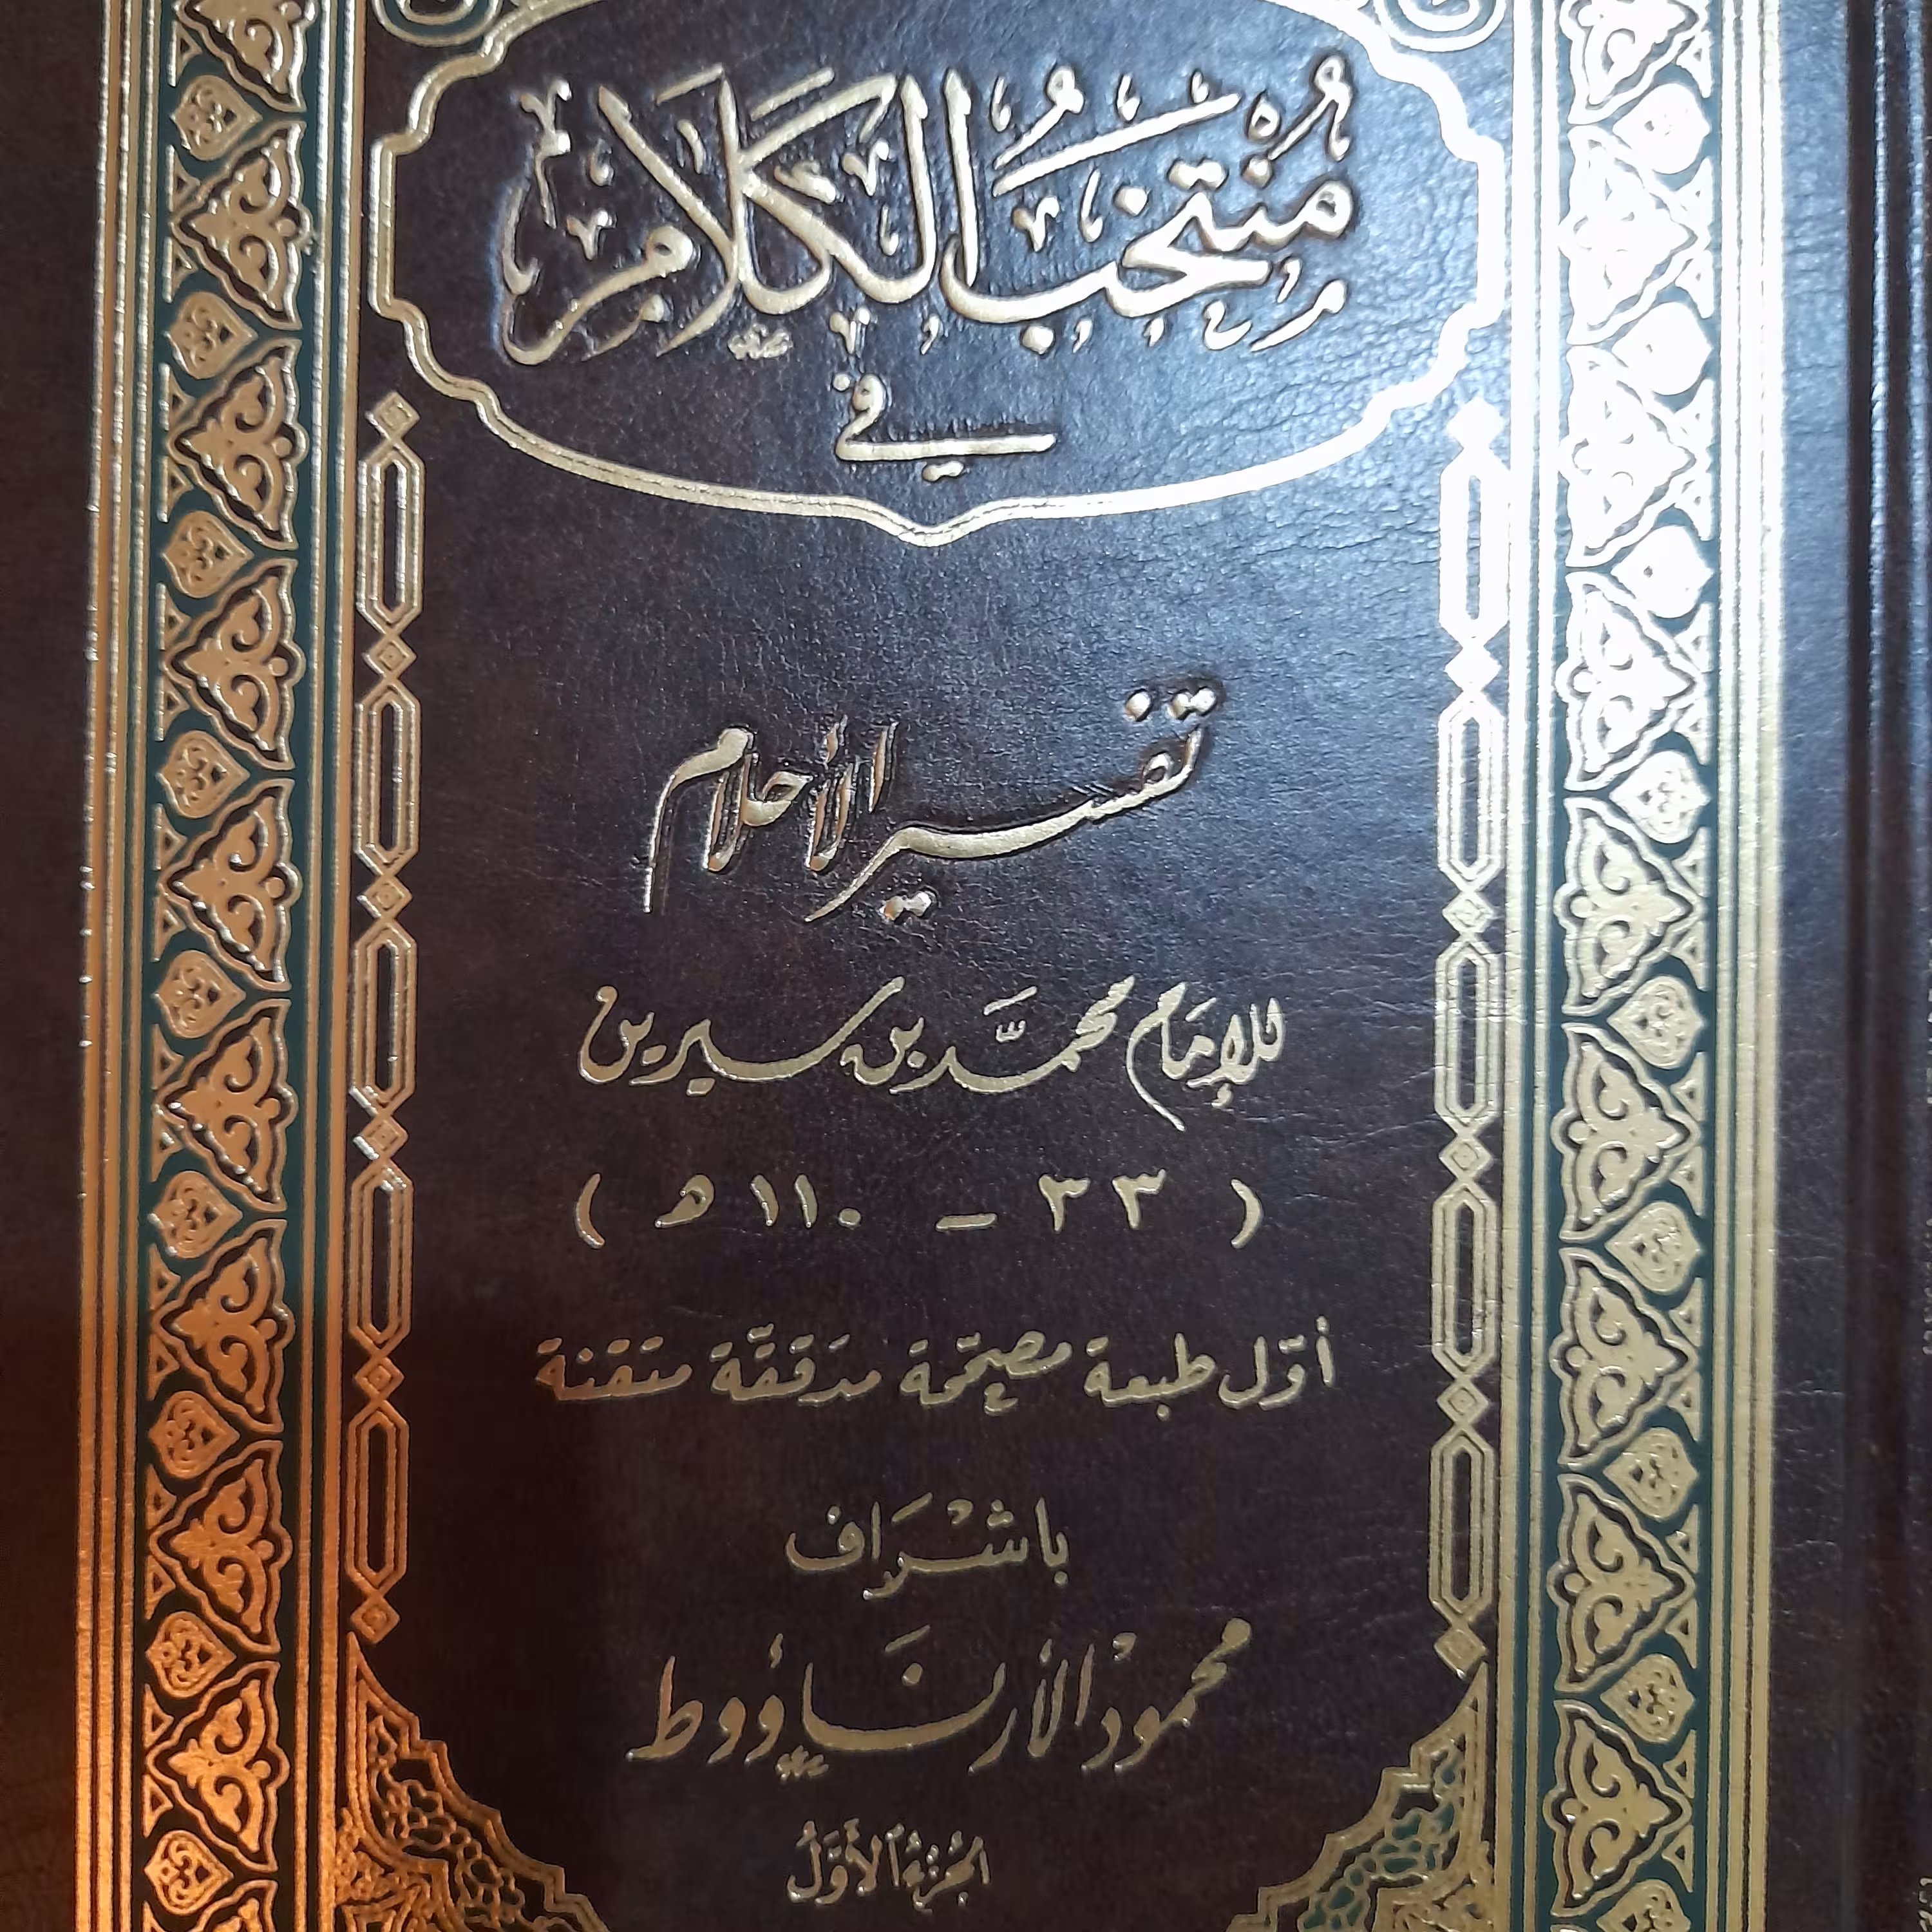 مُنْتَخَبُ الكَلَامِ
في
تفسير الأحلام
للإمَام محمَّد بن سيرين
( ٣٣ - ١١٠ هـ )
أوّل طبعة مصحّحة مدَققّة متقنة
باشْرَاف
محمودْ الأرنَاؤوط
الجُزْءُ الأَوَّلُ